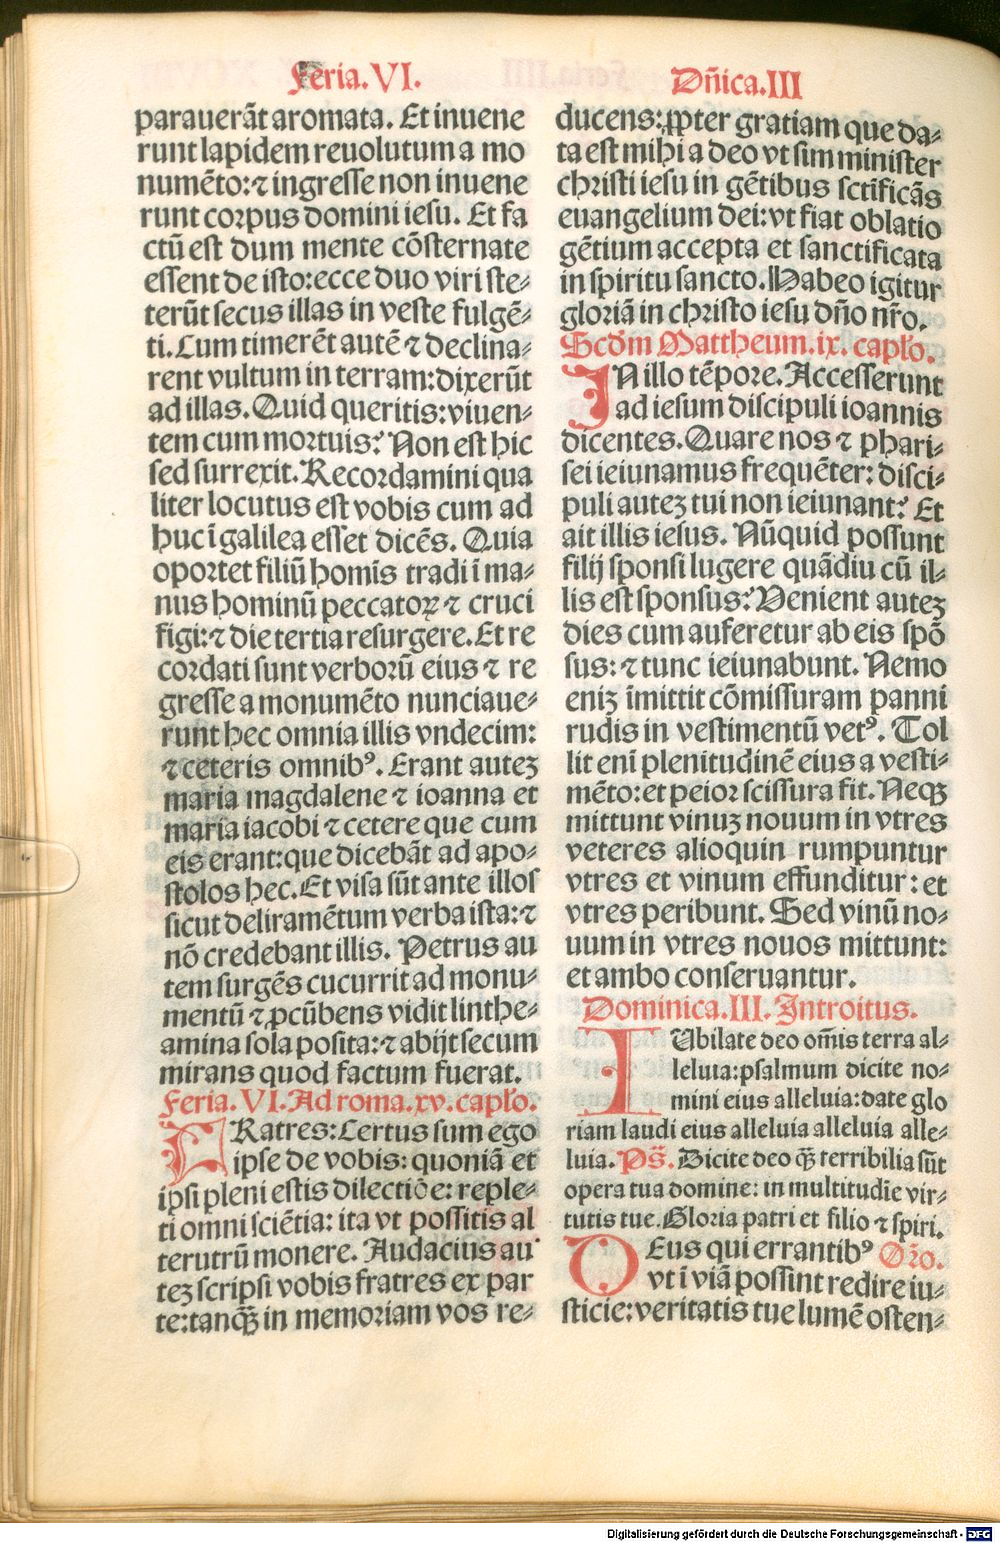 Feria.VI.
parauerāt aromata. Et inuene
runt lapidem reuolutum a mo
numēto:⁊ ingresse non inuene
runt corpus domini iesu. Et fa
ctū est dum mente cōsternate
essent de isto:ecce duo viri ste⸗
terūt secus illas in veste fulgē⸗
ti. Cum timerēt autē ⁊ declina⸗
rent vultum in terram:dixerūt
ad illas. Quid queritis:viuen⸗
tem cum mortuis? Non est hic
sed surrexit. Recordamini qua
liter locutus est vobis cum ad
huc ī galilea esset dicēs. Quia
oportet filiū homīs tradi ī ma⸗
nus hominū peccatoꝝ ⁊ cruci
figi:⁊ die tertia resurgere. Et re
cordati sunt verborū eius ⁊ re
gresse a monumēto nunciaue⸗
runt hec omnia illis vndecim:
⁊ ceteris omnibꝰ. Erant auteꝫ
maria magdalene ⁊ ioanna et
maria iacobi ⁊ cetere que cum
eis erant:que dicebāt ad apo⸗
stolos hec. Et visa sūt ante illos
sicut deliramētum verba ista:⁊
nō credebant illis. Petrus au
tem surgēs cucurrit ad monu⸗
mentū ⁊ ꝓcūbens vidit linthe⸗
amina sola posita:⁊ abijt secum
mirans quod factum fuerat.
Feria. VI. Ad roma. xv. caplo.
FRatres: Certus sum ego
ipse de vobis: quoniā et
ipsi pleni estis dilectiōe: reple⸗
ti omni sciētia: ita vt possitis al
terutrū monere. Audacius au
teꝫ scripsi vobis fratres ex par
te:tanqꝫ̄ in memoriam vos re⸗
Dn̄ica.III
ducens:ꝓpter gratiam que da⸗
ta est mihi a deo vt sim minister
christi iesu in gētibus sctīficās
euangelium dei:vt fiat oblatio
gētium accepta et sanctificata
in spiritu sancto. Habeo igitur
gloriā in christo iesu dn̄o nr̄o.
Scd̄m Mattheum. ix. caplo.
IN illo tēpore. Accesserunt
ad iesum discipuli ioannis
dicentes. Quare nos ⁊ phari⸗
sei ieiunamus frequēter: disci⸗
puli auteꝫ tui non ieiunant? Et
ait illis iesus. Nūquid possunt
filij sponsi lugere quādiu cū il⸗
lis est sponsus? Venient auteꝫ
dies cum auferetur ab eis spō
sus: ⁊ tunc ieiunabunt. Nemo
eniꝫ īmittit cōmissuram panni
rudis in vestimentū vetꝰ. Tol
lit enī plenitudinē eius a vesti⸗
mēto: et peior scissura fit. Neqꝫ
mittunt vinuꝫ nouum in vtres
veteres alioquin rumpuntur
vtres et vinum effunditur: et
vtres peribunt. Sed vinū no⸗
uum in vtres nouos mittunt:
et ambo conseruantur.
Dominica. III. Introitus.
IUbilate deo om̄is terra al⸗
leluia:psalmum dicite no⸗
mini eius alleluia:date glo
riam laudi eius alleluia alleluia alle⸗
luia. Ps̄. Dicite deo qꝫ̄ terribilia sūt
opera tua domine: in multitudīe vir⸗
tutis tue. Gloria patri et filio ⁊ spiri.
DEus qui errantibꝰ Oro.
vt ī viā possint redire iu⸗
sticie: veritatis tue lumē osten⸗
Digitalisierung gefördert durch die Deutsche Forschungsgemeinschaft - DFG